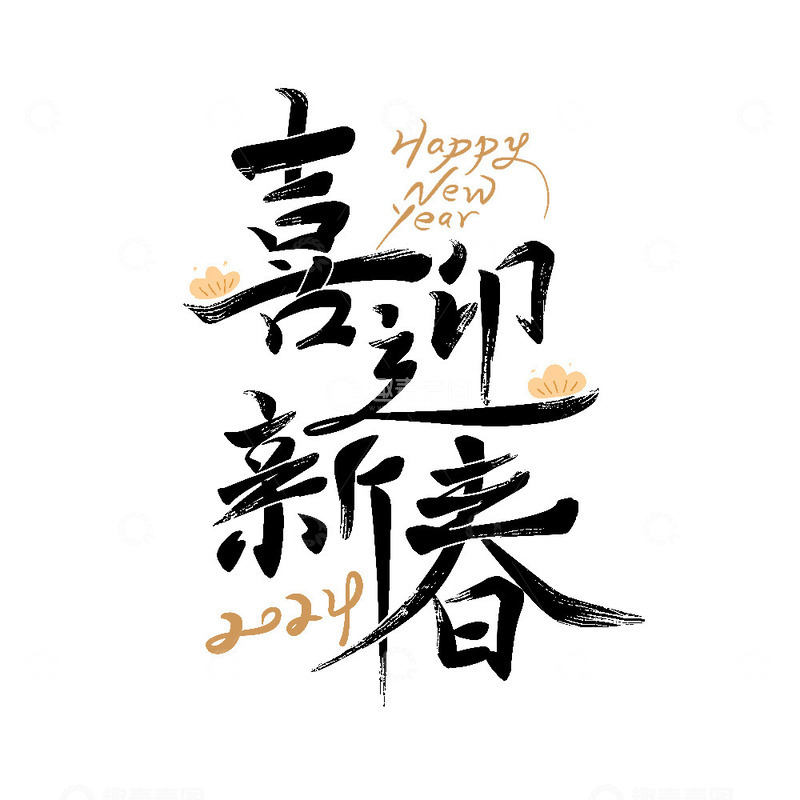 喜迎
新春
Happy
New
Year
2024